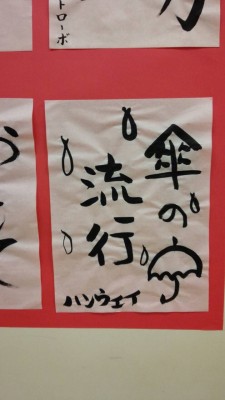 傘の
流行
ハンウェイ
トローボ